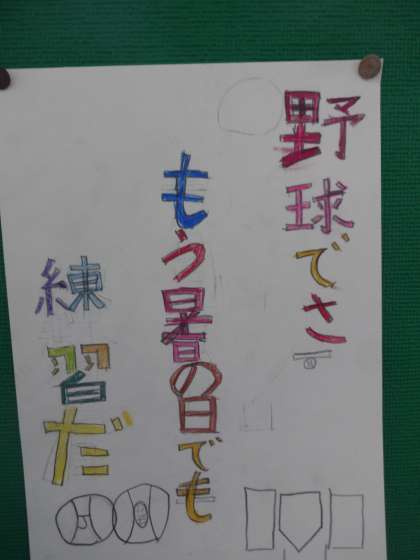 野球でさ
もう暑の日でも
練習だ